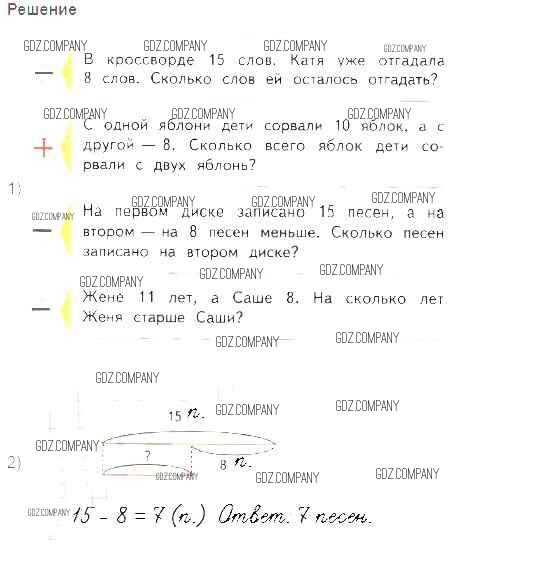 Решение
GDZ.COMPANY GDZ.COMPANY GDZ.COMPANY GDZ.COMPANY
В кроссворде 15 слов. Катя уже отгадала
— 8 слов. Сколько слов ей осталось отгадать?
GDZ.COMPANY GDZ.COMPANY GDZ.COMPANY
С одной яблони дети сорвали 10 яблок, а с
+ другой — 8. Сколько всего яблок дети со-
рвали с двух яблонь?
1)
GDZ.COMPANY GDZ.COMPANY GDZ.COMPANY
GDZ.COMPANY На первом диске записано 15 песен, а на
— втором — на 8 песен меньше. Сколько песен
записано на втором диске?
GDZ.COMPANY GDZ.COMPANY GDZ.COMPANY
Жене 11 лет, а Саше 8. На сколько лет
— Женя старше Саши?
GDZ.COMPANY GDZ.COMPANY
GDZ.COMPANY
15 п. GDZ.COMPANY GDZ.COMPANY
GDZ.COMPANY
2) ? 8 п.
GDZ.COMPANY GDZ.COMPANY GDZ.COMPANY
GDZ.COMPANY 15 - 8 = 7 (п.) Ответ. 7 песен.